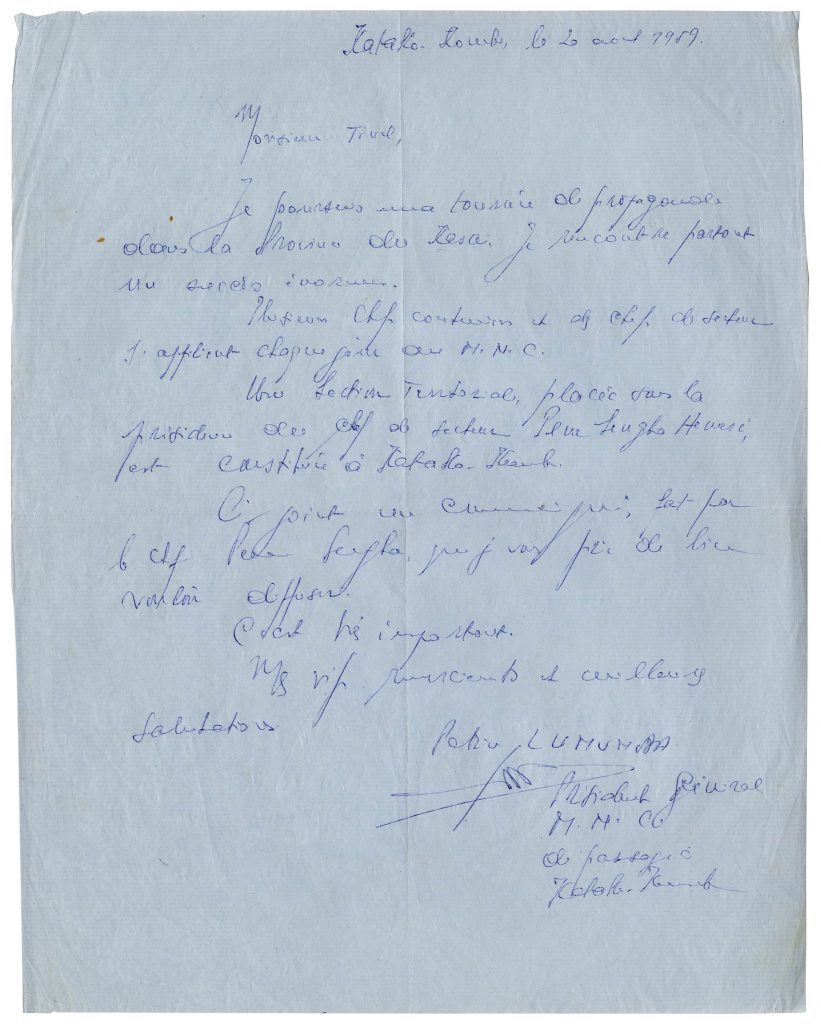 Katako-Kombe, le 20 aout 1959.
Monsieur
Je poursuis une tournée de propagande
dans la Province du Kasai. Je rencontre partout
un succès énorme.
Plusieurs Chefs coutumiers et des chefs de secteur
s'affilient chaque jour au M.N.C.
Une Section Territoriale, placée sous la
présidence du chef de secteur Pene Senghe Henri,
est constituée à Katako-Kombe.
Ci joint un Communiqué, fait par
le chef Pene Senghe, que je vous prie de bien
vouloir diffuser.
C'est très important.
Mes vifs remerciements et meilleures
salutations
Patrice LUMUMBA
Président Général
M.N.C.
de passage à
Katako-Kombe